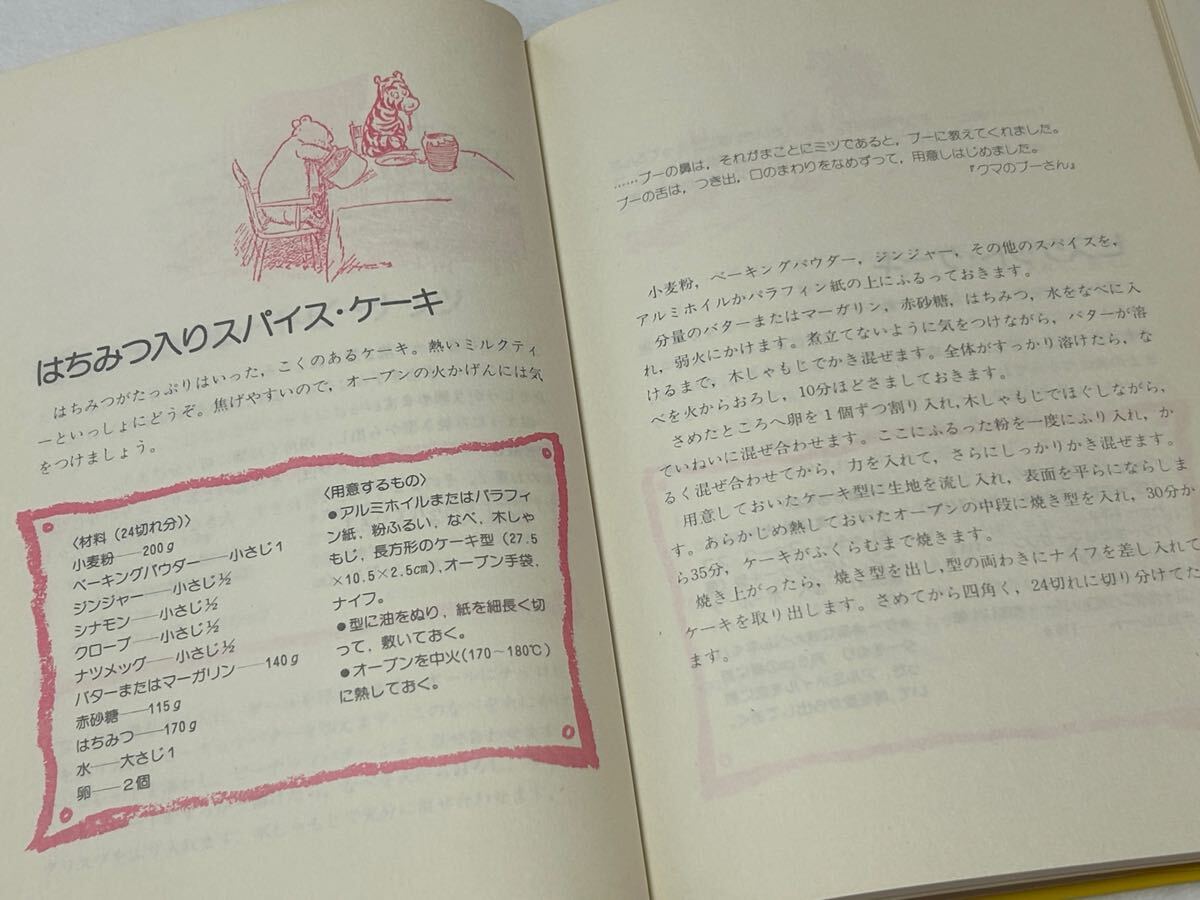 はちみつ入りスパイス・ケーキ
はちみつがたっぷりはいった，こくのあるケーキ。熱いミルクティ
ーといっしょにどうぞ。焦げやすいので，オーブンの火かげんには気
をつけましょう。
〈材料（24切れ分）〉
小麦粉——200g
ベーキングパウダー——小さじ1
ジンジャー——小さじ½
シナモン——小さじ½
クローブ——小さじ½
ナツメッグ——小さじ½
バターまたはマーガリン——140g
赤砂糖——115g
はちみつ——170g
水——大さじ1
卵——2個
〈用意するもの〉
●アルミホイルまたはパラフィ
ン紙，粉ふるい，なべ，木しゃ
もじ，長方形のケーキ型（27.5
×10.5×2.5cm），オーブン手袋，
ナイフ。
●型に油をぬり，紙を細長く切
って，敷いておく。
●オーブンを中火（170〜180℃）
に熱しておく。
……プーの鼻は，それがまことにミツであると，プーに教えてくれました。
プーの舌は，つき出，口のまわりをなめずって，用意しはじめました。
『クマのプーさん』
小麦粉，ベーキングパウダー，ジンジャー，その他のスパイスを，
アルミホイルかパラフィン紙の上にふるっておきます。
分量のバターまたはマーガリン，赤砂糖，はちみつ，水をなべに入
れ，弱火にかけます。煮立てないように気をつけながら，バターが溶
けるまで，木しゃもじでかき混ぜます。全体がすっかり溶けたら，な
べを火からおろし，10分ほどさましておきます。
さめたところへ卵を1個ずつ割り入れ，木しゃもじでほぐしながら，
ていねいに混ぜ合わせます。ここにふるった粉を一度にふり入れ，か
るく混ぜ合わせてから，力を入れて，さらにしっかりかき混ぜます。
用意しておいたケーキ型に生地を流し入れ，表面を平らにならしま
す。あらかじめ熱しておいたオーブンの中段に焼き型を入れ，30分か
ら35分，ケーキがふくらむまで焼きます。
焼き上がったら，焼き型を出し，型の両わきにナイフを差し入れて
ケーキを取り出します。さめてから四角く，24切れに切り分けてた
ます。